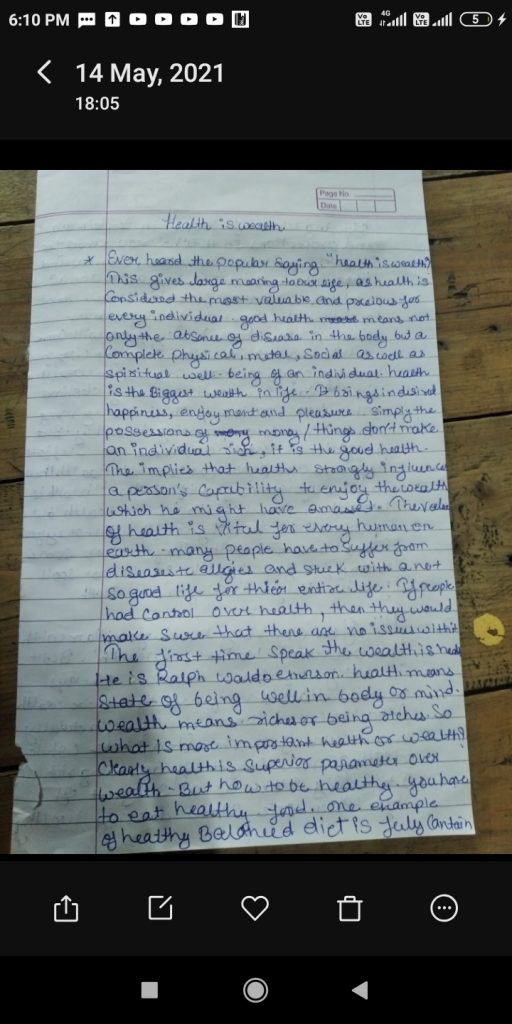 6:10 PM
4G
Vo LTE
Vo LTE
5
14 May, 2021
18:05
Page No.
Date
Health is wealth
* Ever heard the popular Saying. "health is wealth?
This gives large meaning to our life, as health is
Considered the most valuable and precious for
every individual. good health means not
only the absence of disease in the body but a
Complete physical, metal, Social as well as
spiritual well-being of an individual. health
is the Biggest wealth in life. It brings
happiness, enjoyment and pleasure. Simply the
possessions of money / things don't make
an individual rich, it is the good health.
The implies that health strongly influences
a person's Capability to enjoy the wealth
which he might have amassed. The value
of health is vital for every human on
earth. many people have to Suffer from
diseases to allgies and stuck with a not
so good life for thier entire life. If people
had Control over health, then they would
make Sure that there are no issues with it
The first time Speak the wealth is
He is Ralph waldo emerson. health means
State of being well in body or mind.
wealth means riches or being riches. So
what is more important health or wealth?
Clearly health is Superior parameter over
wealth. But how to be healthy. you have
to eat healthy food. one example
of healthy Balanced diet is fully Contain